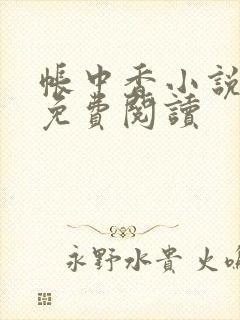 帳中香小說
免費閱讀
永野水貴 火鳴